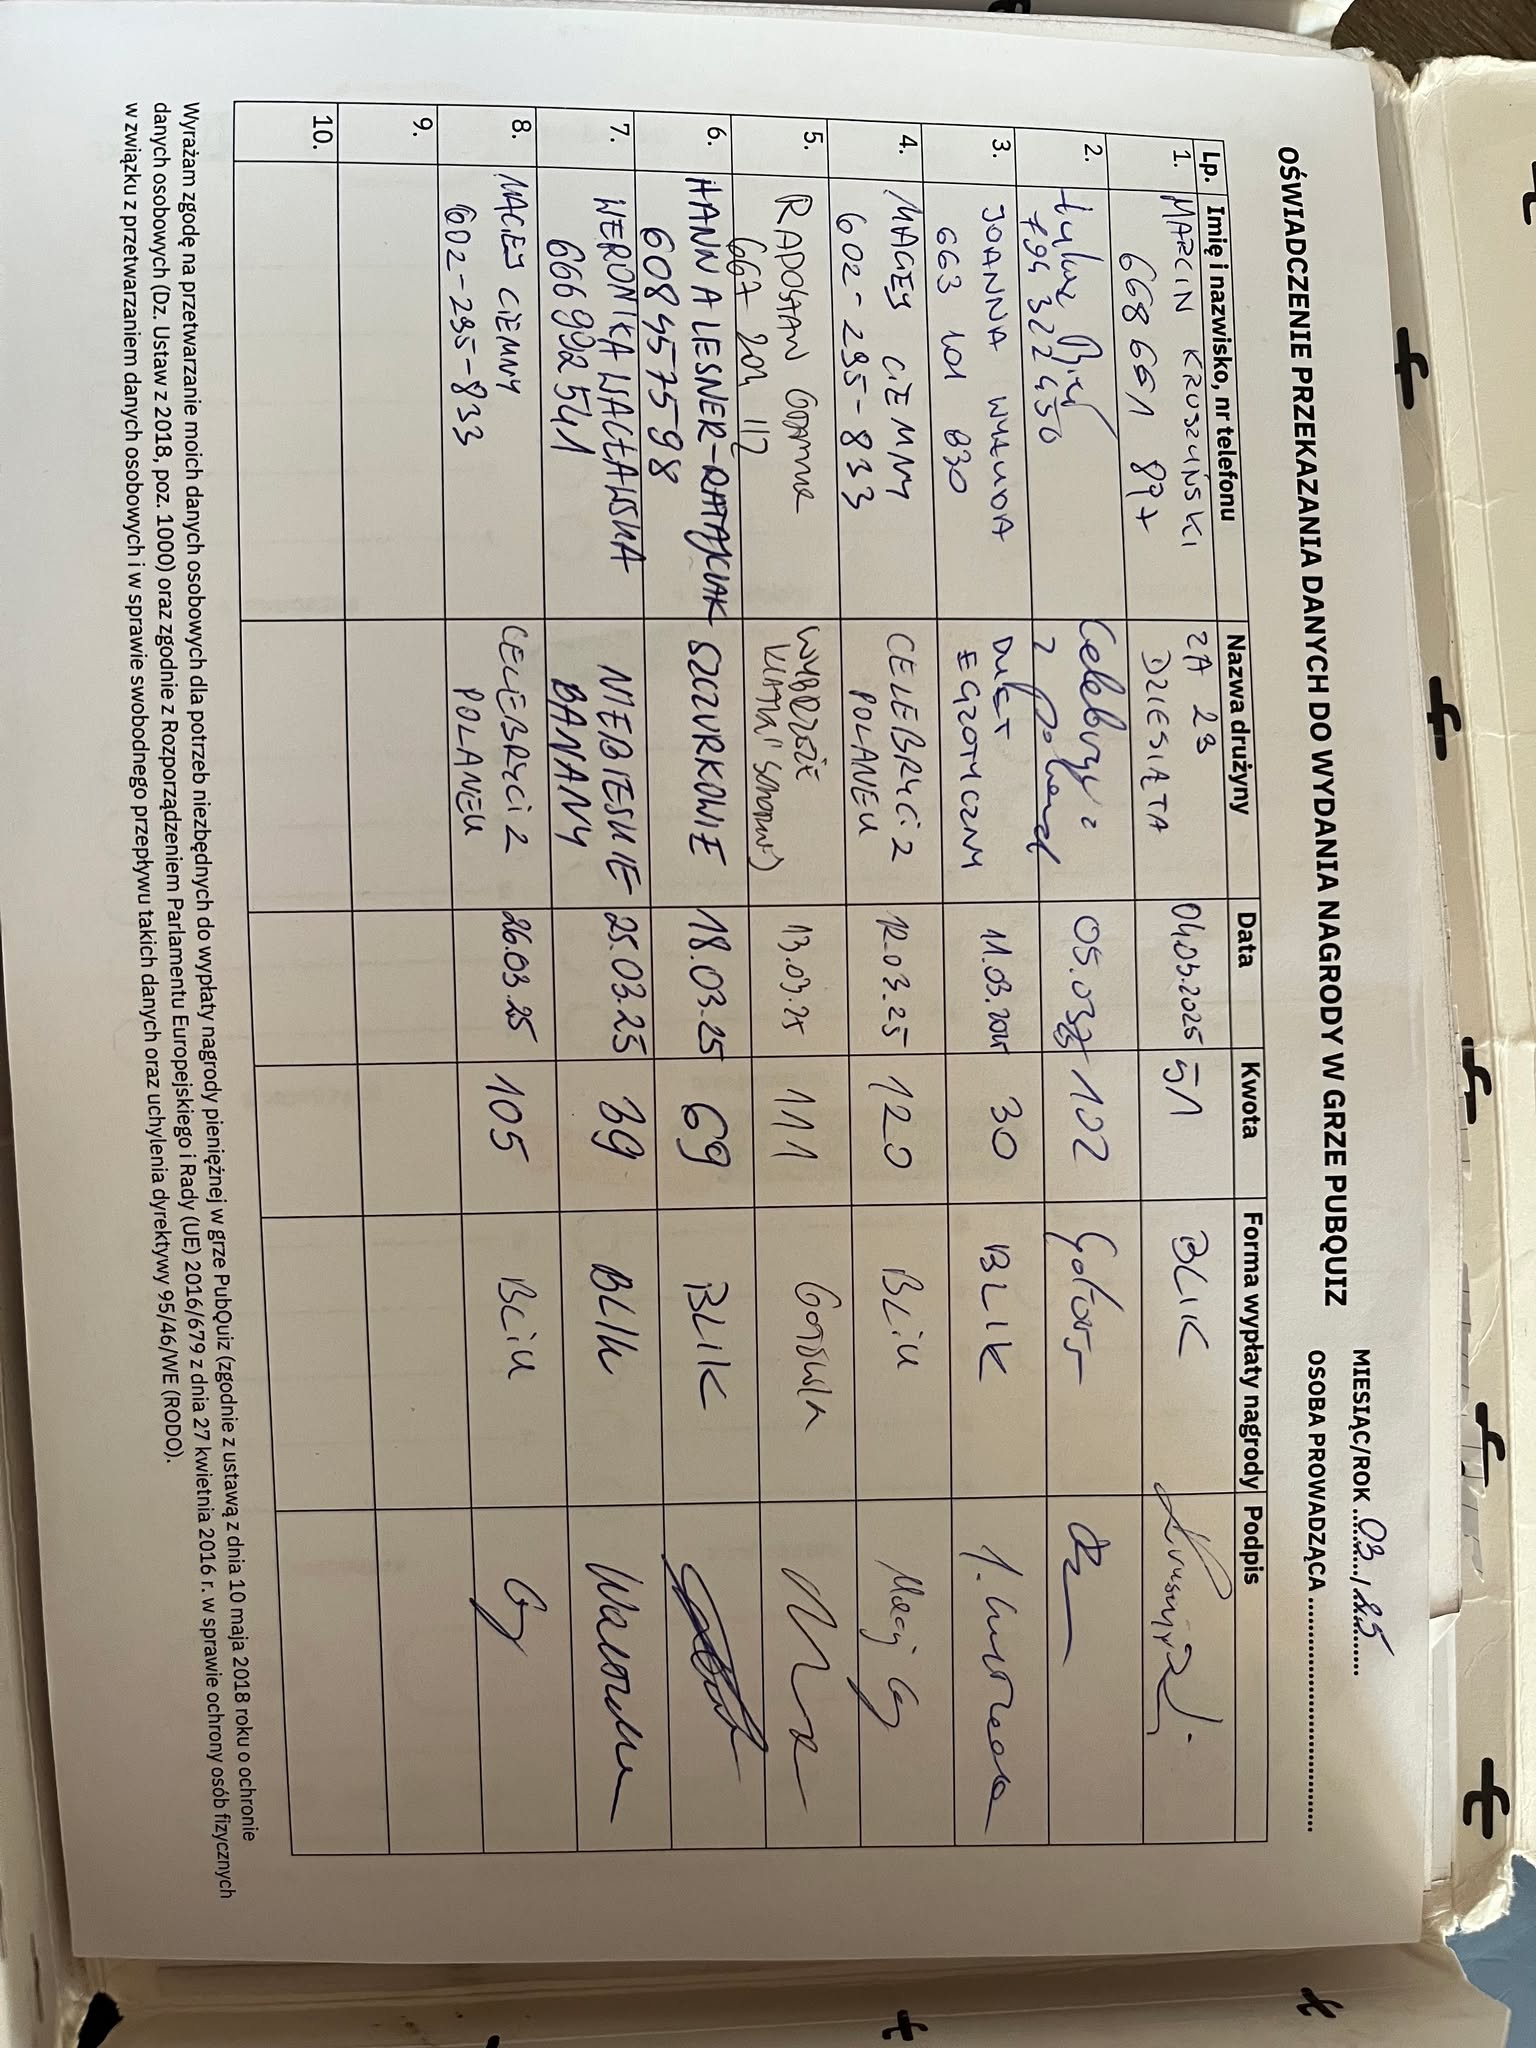 OŚWIADCZENIE PRZEKAZANIA DANYCH DO WYDANIA NAGRODY W GRZE PUBQUIZ
MIESIĄC/ROK 03/25
OSOBA PROWADZĄCA
Lp. Imię i nazwisko, nr telefonu Nazwa drużyny Data Kwota Forma wypłaty nagrody Podpis
1. MARCIN KRUSZYŃSKI ZA 23 04.03.2025 51 BLIK
668 661 897 DZIESIĄTA
2. Celebryci 05.03.25 102
794 322 450 z
3. JOANNA DUET 11.03.2025 30 BLIK
663 101 830 EGZOTYCZNY
4. MACIEJ CIEMNY CELEBRYCI Z 12.03.25 120 BLIK Maciej
602-295-833 POLANEK
5. 13.03.25 111 GOTÓWKA
667 204 112
6. HANNA LESNER-RATAJCZAK SZCZURKOWIE 18.03.25 69 BLIK
608457598
7. WERONIKA WACŁAWSKA NIEBIESKIE 25.03.25 39 BLIK
666992541 BANANY
8. MACIEJ CIEMNY CELEBRYCI Z 26.03.25 105 BLIK
602-295-833 POLANEK
9.
10.
Wyrażam zgodę na przetwarzanie moich danych osobowych dla potrzeb niezbędnych do wypłaty nagrody pieniężnej w grze PubQuiz (zgodnie z ustawą z dnia 10 maja 2018 roku o ochronie
danych osobowych (Dz. Ustaw z 2018, poz. 1000) oraz zgodnie z Rozporządzeniem Parlamentu Europejskiego i Rady (UE) 2016/679 z dnia 27 kwietnia 2016 r. w sprawie ochrony osób fizycznych
w związku z przetwarzaniem danych osobowych i w sprawie swobodnego przepływu takich danych oraz uchylenia dyrektywy 95/46/WE (RODO).